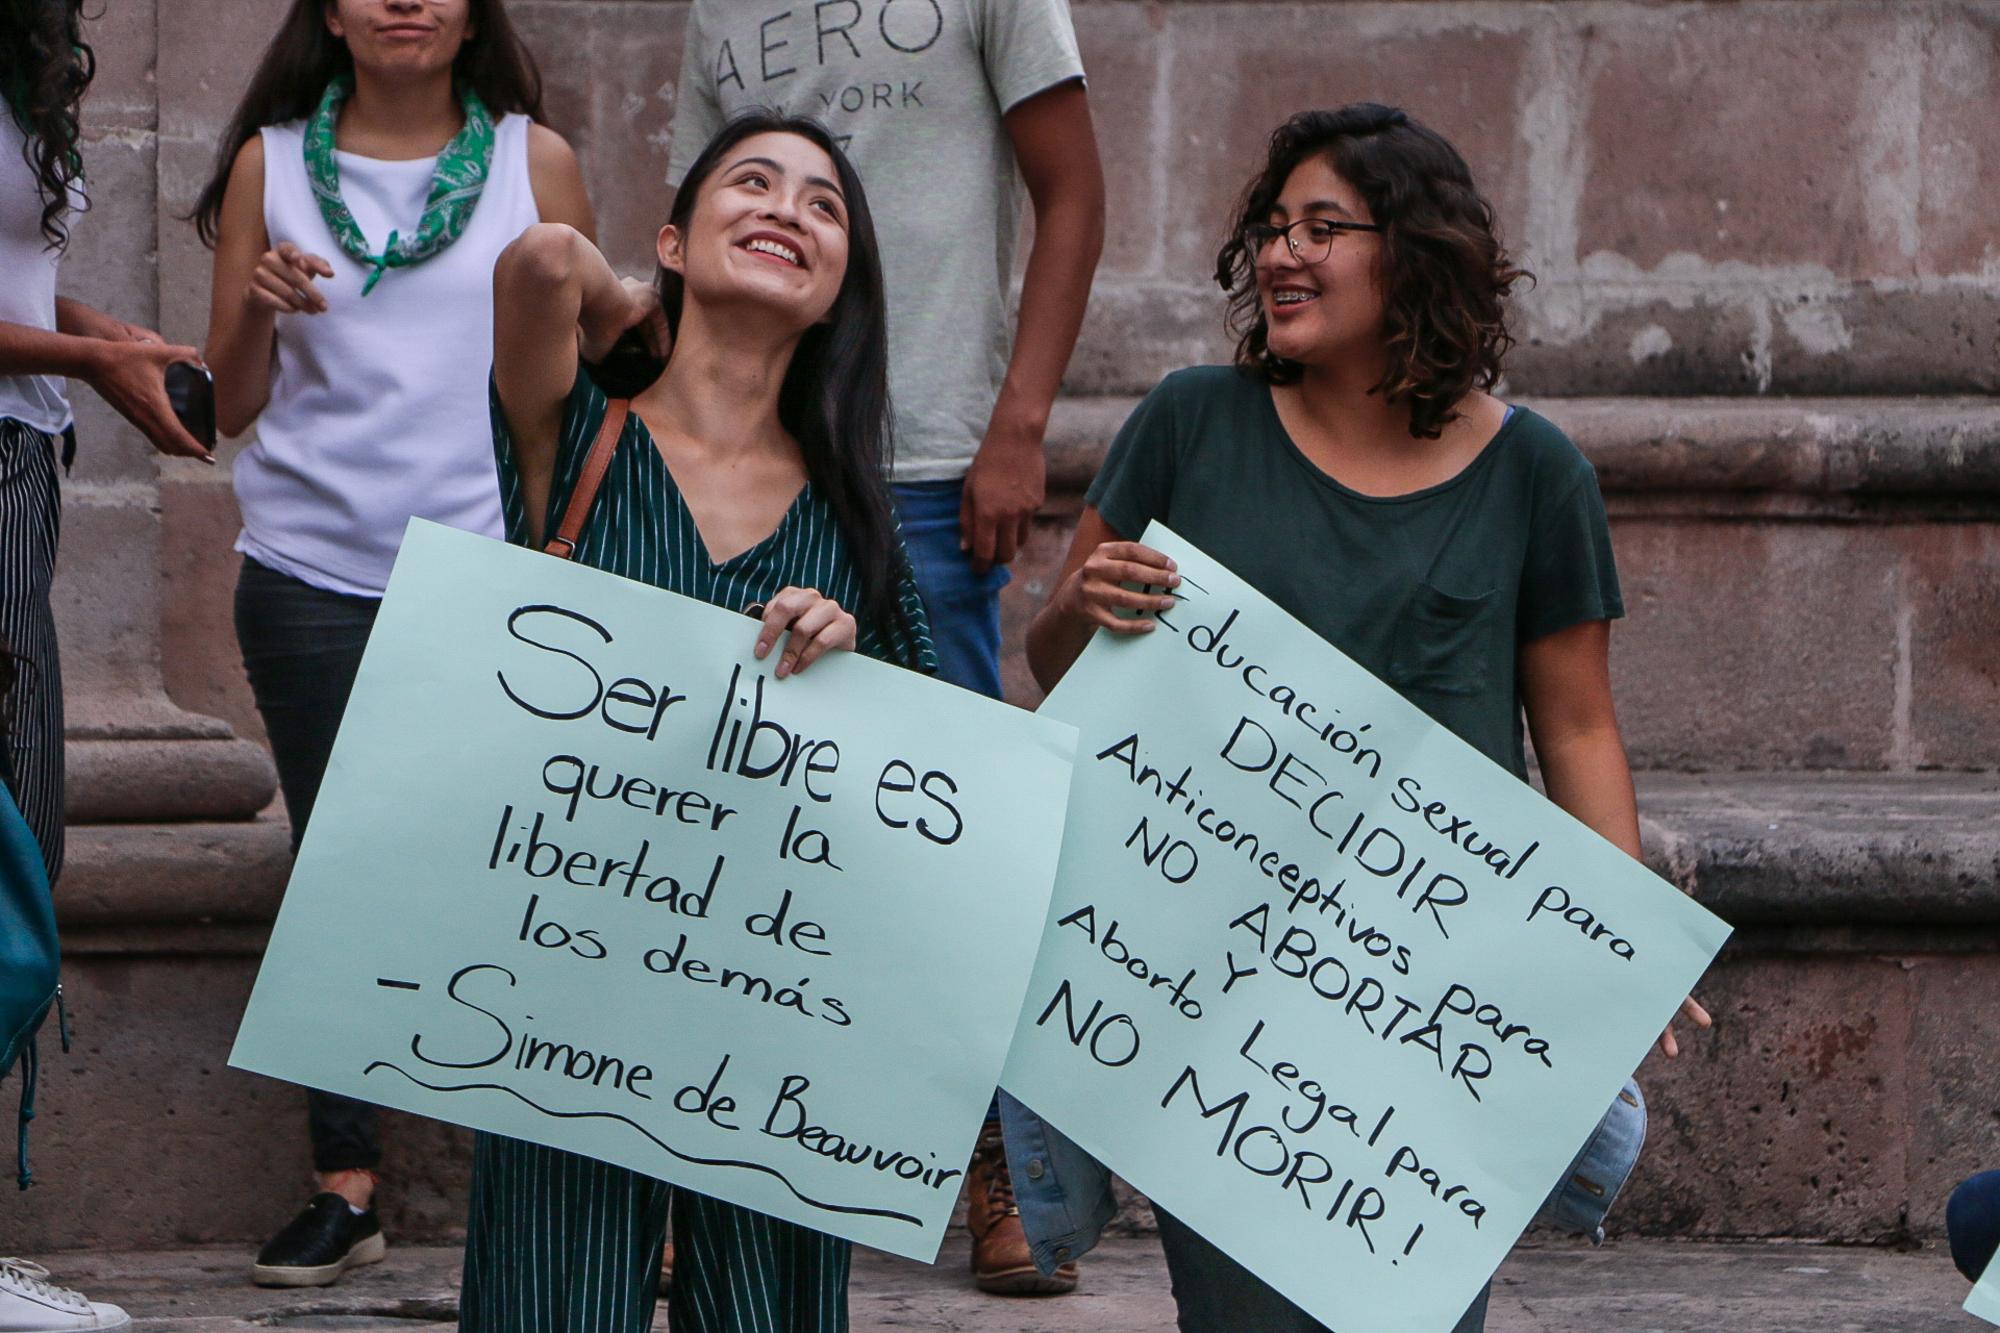 AERO
YORK
Ser libre es
querer la
libertad de
los demás
- Simone de Beauvoir
Educación sexual para
DECIDIR
Anticonceptivos para
NO ABORTAR
Y
Aborto Legal para
NO MORIR!